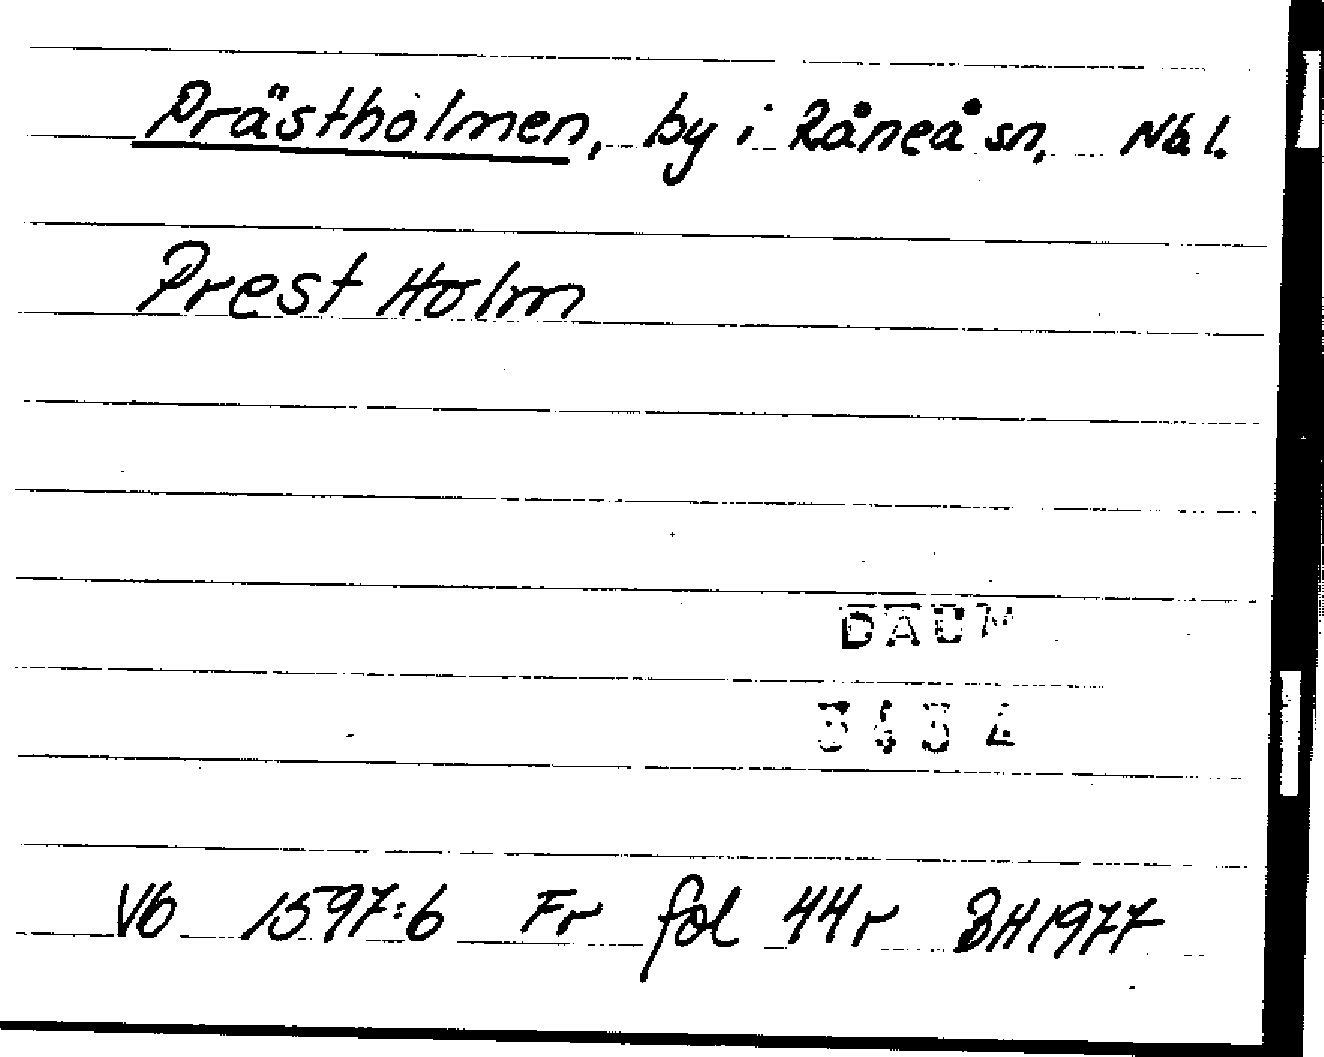 Prästholmen, by i Råneå sn, Nb l.
Prest Holm
DAUM
3434
Vb 1597:6 Fr fol 44r BH1977